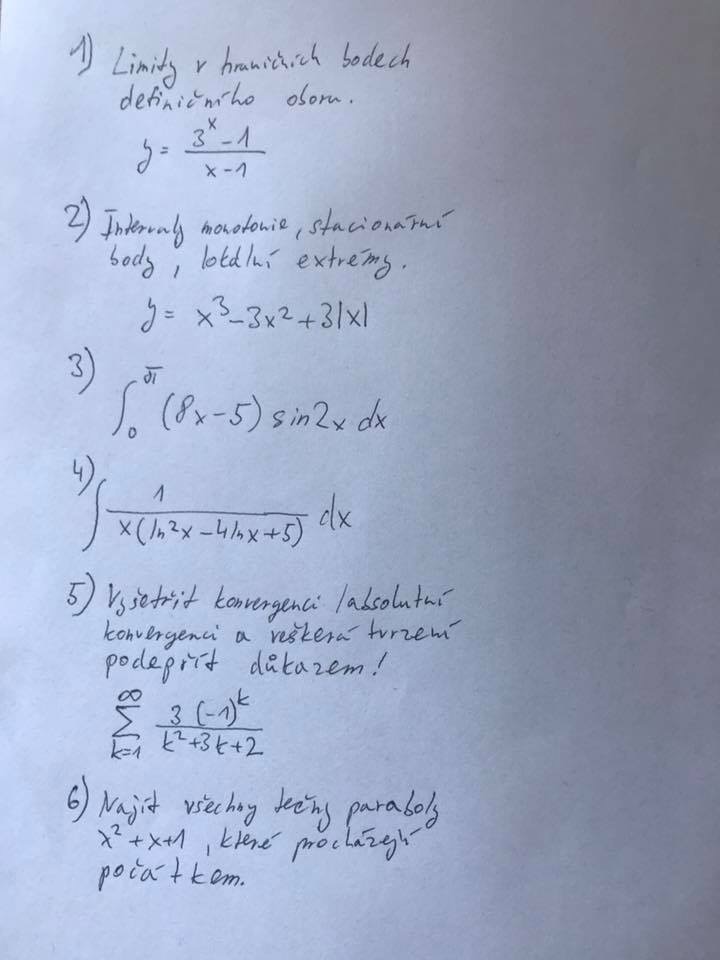 1) Limity v hraničních bodech
definičního oboru.
y = \frac{3^x - 1}{x - 1}
2) Intervaly monotonie, stacionární
body, lokální extrémy.
y = x^3 - 3x^2 + 3|x|
3) \int_0^{\pi} (8x - 5) \sin 2x dx
4) \int \frac{1}{x(\ln^2 x - 4 \ln x + 5)} dx
5) Vyšetřit konvergenci /absolutní
konvergenci a veškerá tvrzení
podepřít důkazem!
\sum_{k=1}^{\infty} \frac{3 (-1)^k}{k^2 + 3k + 2}
6) Najít všechny tečny paraboly
x^2 + x + 1, které procházejí
počátkem.